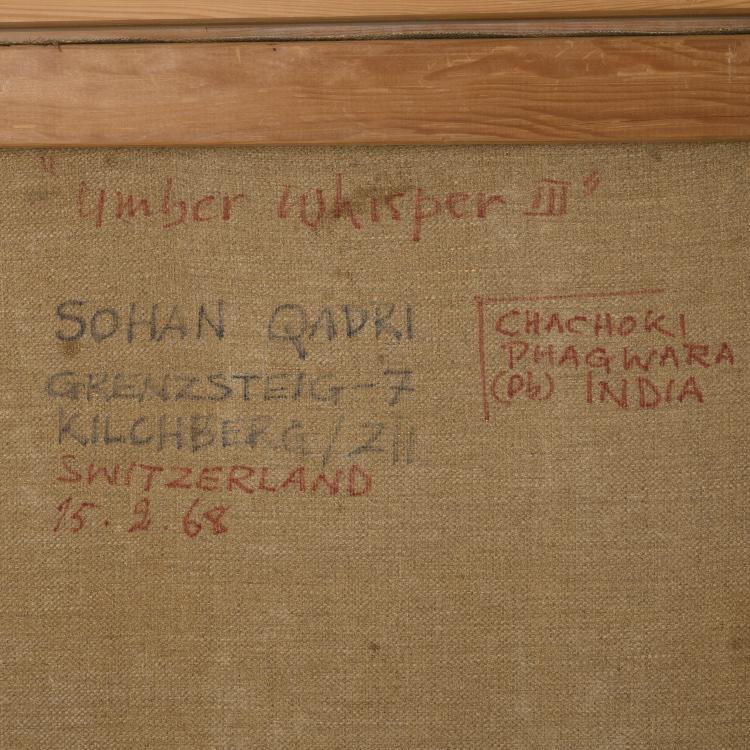 "Umber Whisper III"
SOHAN QADRI
GRENZSTEIG-7
KILCHBERG/ZH
SWITZERLAND
15.2.68
CHACHOKI
PHAGWARA
(Pb) INDIA